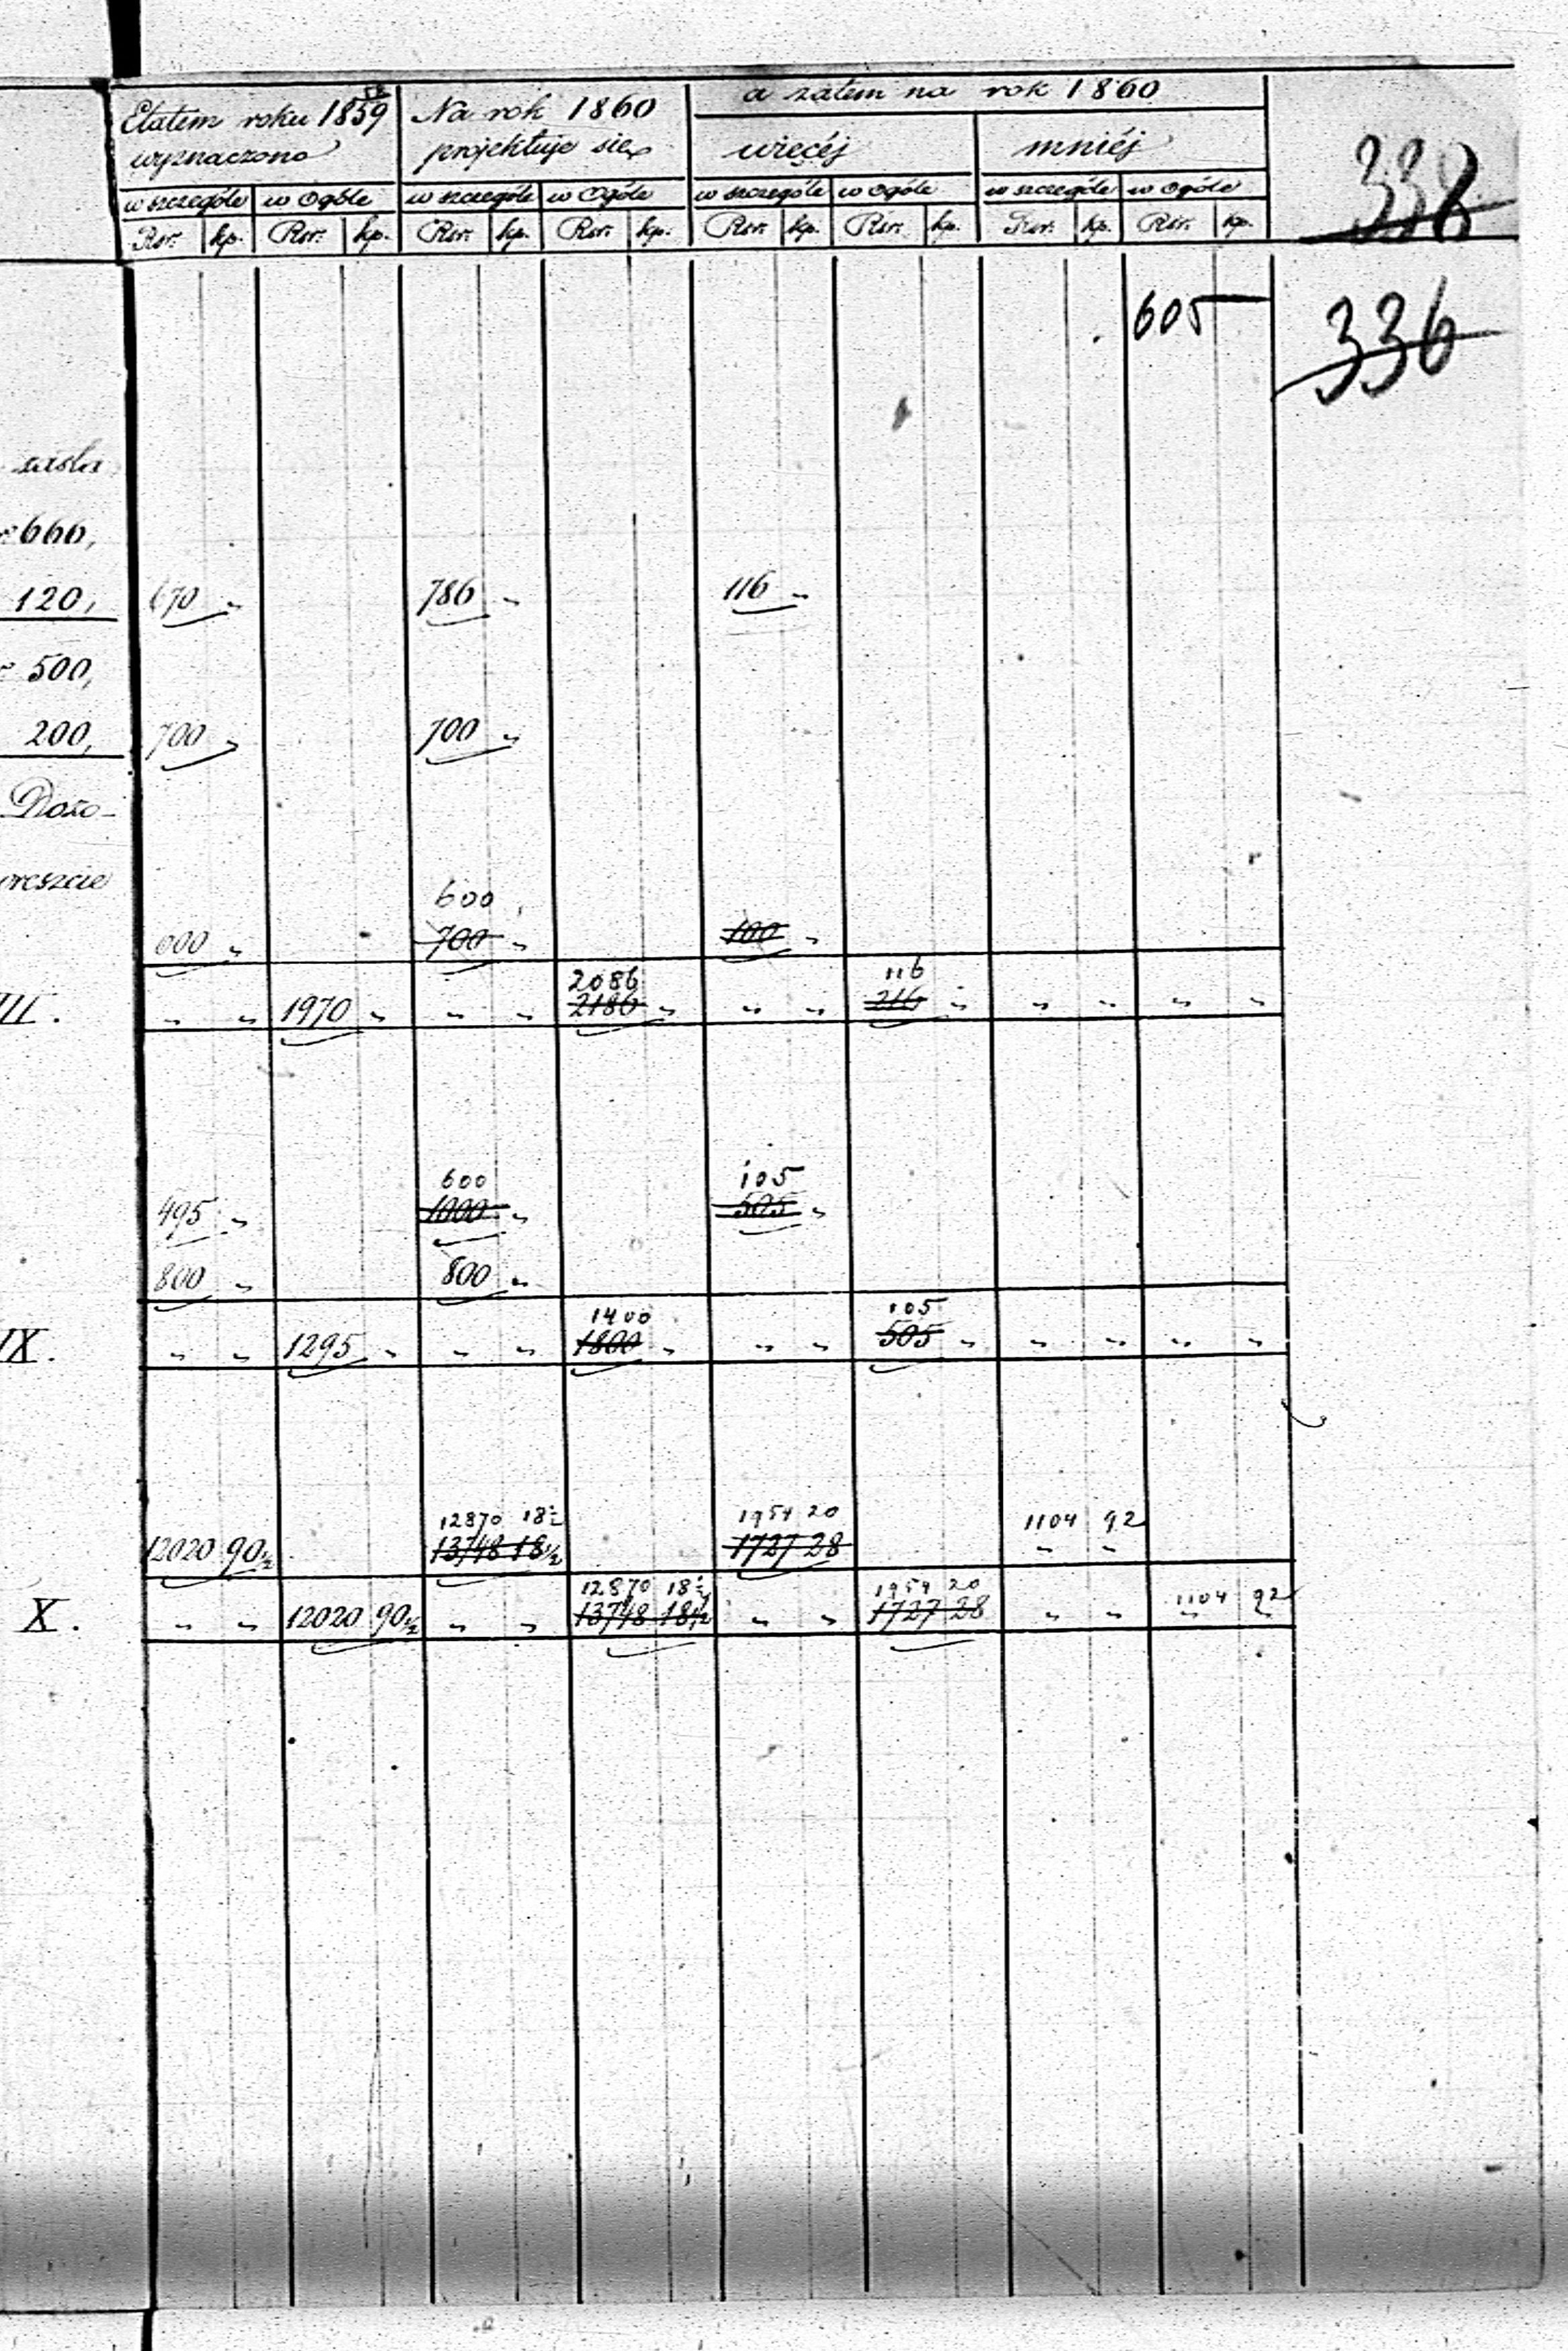 Etatem roku 1859 Na rok 1860 a zatem na rok 1860
58
wyznaczono projektuje się więcéj mniéj
338
w szczególe w Ogóle w szczególe w Ogóle w szczególe w ogóle w szczególe w ogóle
Rsr. kp. Rsr. kp. Rsr. kp. Rsr. kp. Rsr. kp. Rsr. kp. Rsr. kp. Rsr. kp.
605 —
336
666,
120, 670 „ 786 „ 116 „
500,
200, 700 „ 700 „
Dozo-
600
600 „ 700 „ 100 „
2086 116
„ „ 1970 „ „ „ 2186 „ „ „ 216 „ „ „ „ „
600 105
495 „ 1000 „ 505 „
800 „ 800 „
1400 105
IX. „ „ 1295 „ „ „ 1800 „ „ „ 505 „ „ „ „ „
12870 18½ 1954 20 1104 92
12020 90½ 13748 18½ 1727 28 „ „
12870 18½ 1954 20 1104 92
X. „ „ 12020 90½ „ „ 13748 18½ „ „ 1727 28 „ „ „ „